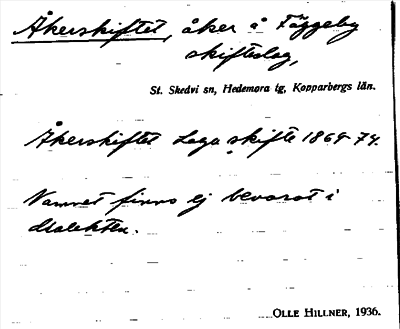 Åkerskiftet, åker å Fäggeby
skifteslag,
St. Skedvi sn, Hedemora tg, Kopparbergs län.
Åkerskiftet Laga skifte 1869-74.
Namnet finns ej bevarat i
dialekten.
OLLE HILLNER, 1936.